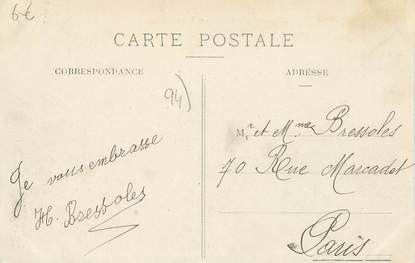 6€
CARTE POSTALE
CORRESPONDANCE
ADRESSE
94)
Je vous embrasse
H. Bressoles
Mr et Mme Bressoles
70 Rue Marcadet
Paris